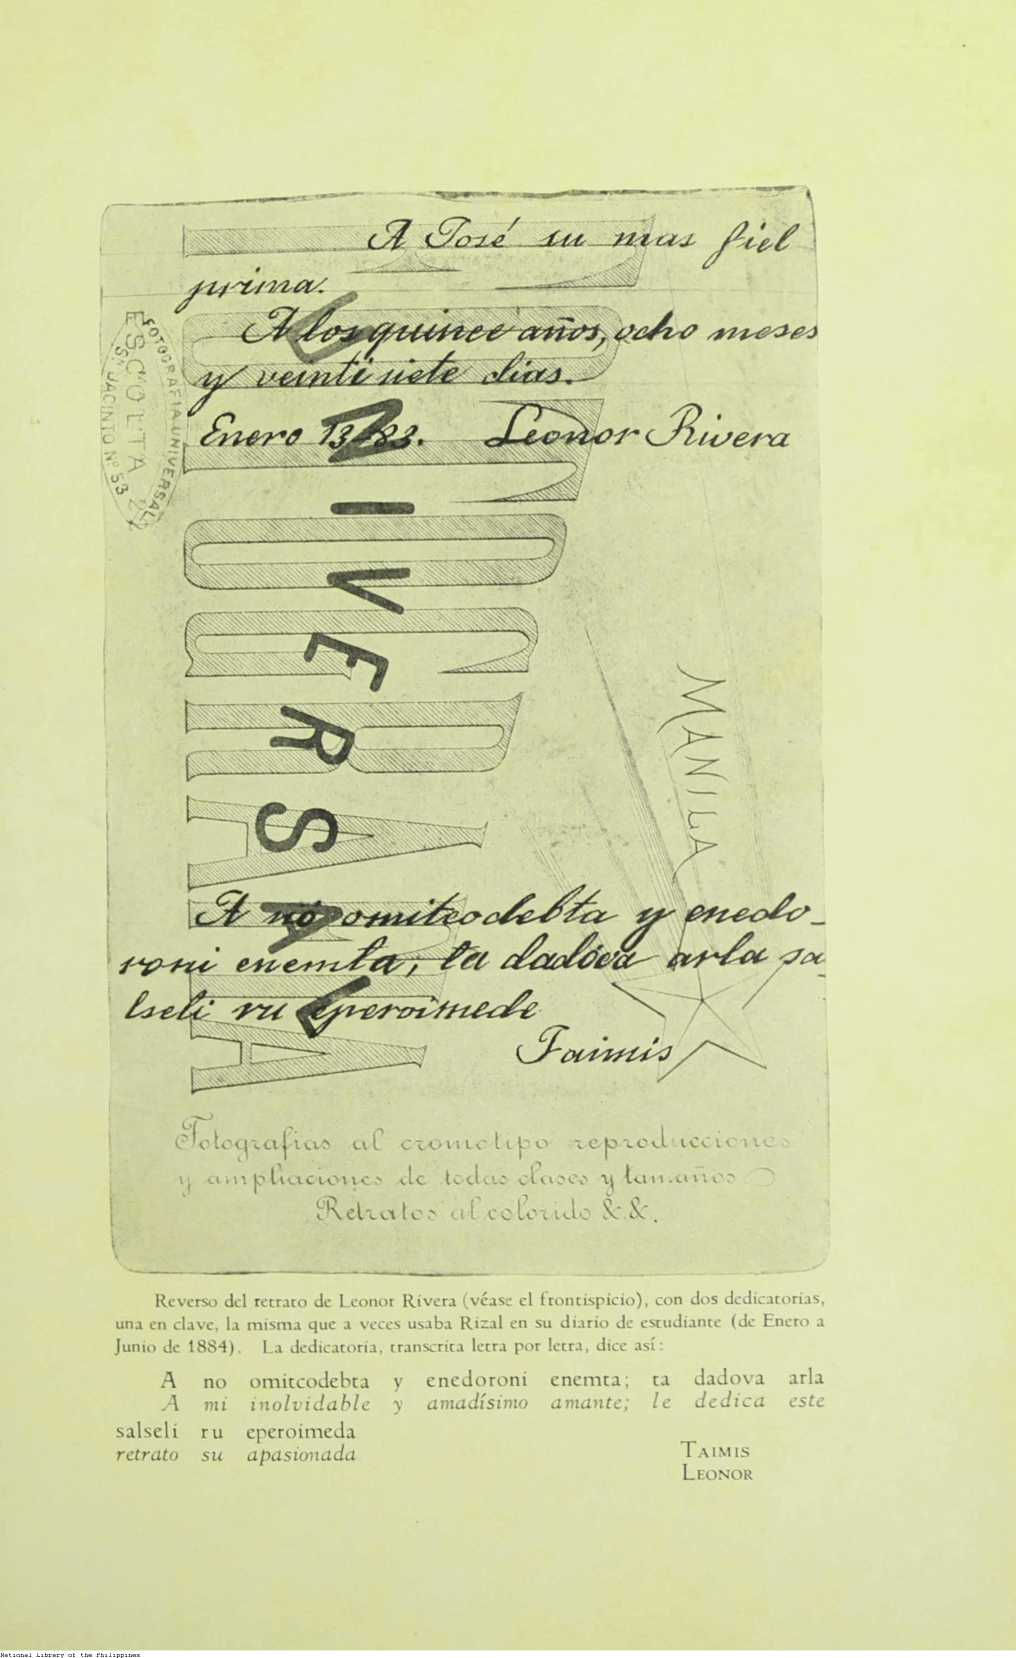 A José su mas fiel
prima.
A los quince años, ocho meses
y veinti siete dias.
Enero 13-83. Leonor Rivera
FOTOGRAFIA UNIVERSAL
ESCOLTA
Sn JACINTO No 53
FOTOGRAFIA
UNIVERSAL
MANILA
A no omitcodebta y enedo-
roni enemta; ta dadova arla sa-
lseli ru eperoimede
Taimis
Fotografias al cromotipo reproducciones
y ampliaciones de todas clases y tamaños
Retratos al colorido &.&.
Reverso del retrato de Leonor Rivera (véase el frontispicio), con dos dedicatorias,
una en clave, la misma que a veces usaba Rizal en su diario de estudiante (de Enero a
Junio de 1884). La dedicatoria, transcrita letra por letra, dice así:
A no omitcodebta y enedoroni enemta; ta dadova arla
A mi inolvidable y amadísimo amante; le dedica este
salseli ru eperoimeda
retrato su apasionada
TAIMIS
LEONOR
National Library of the Philippines